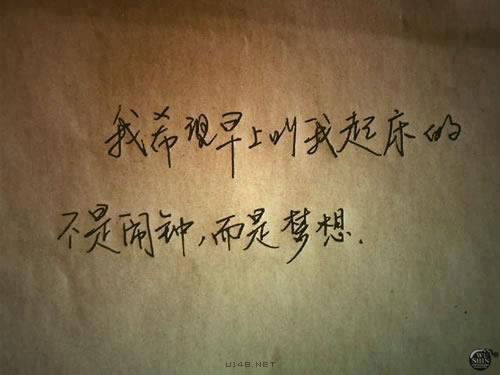 我希现早上叫我起床的
不是闹钟,而是梦想.
U148.NET
WU
SHIN